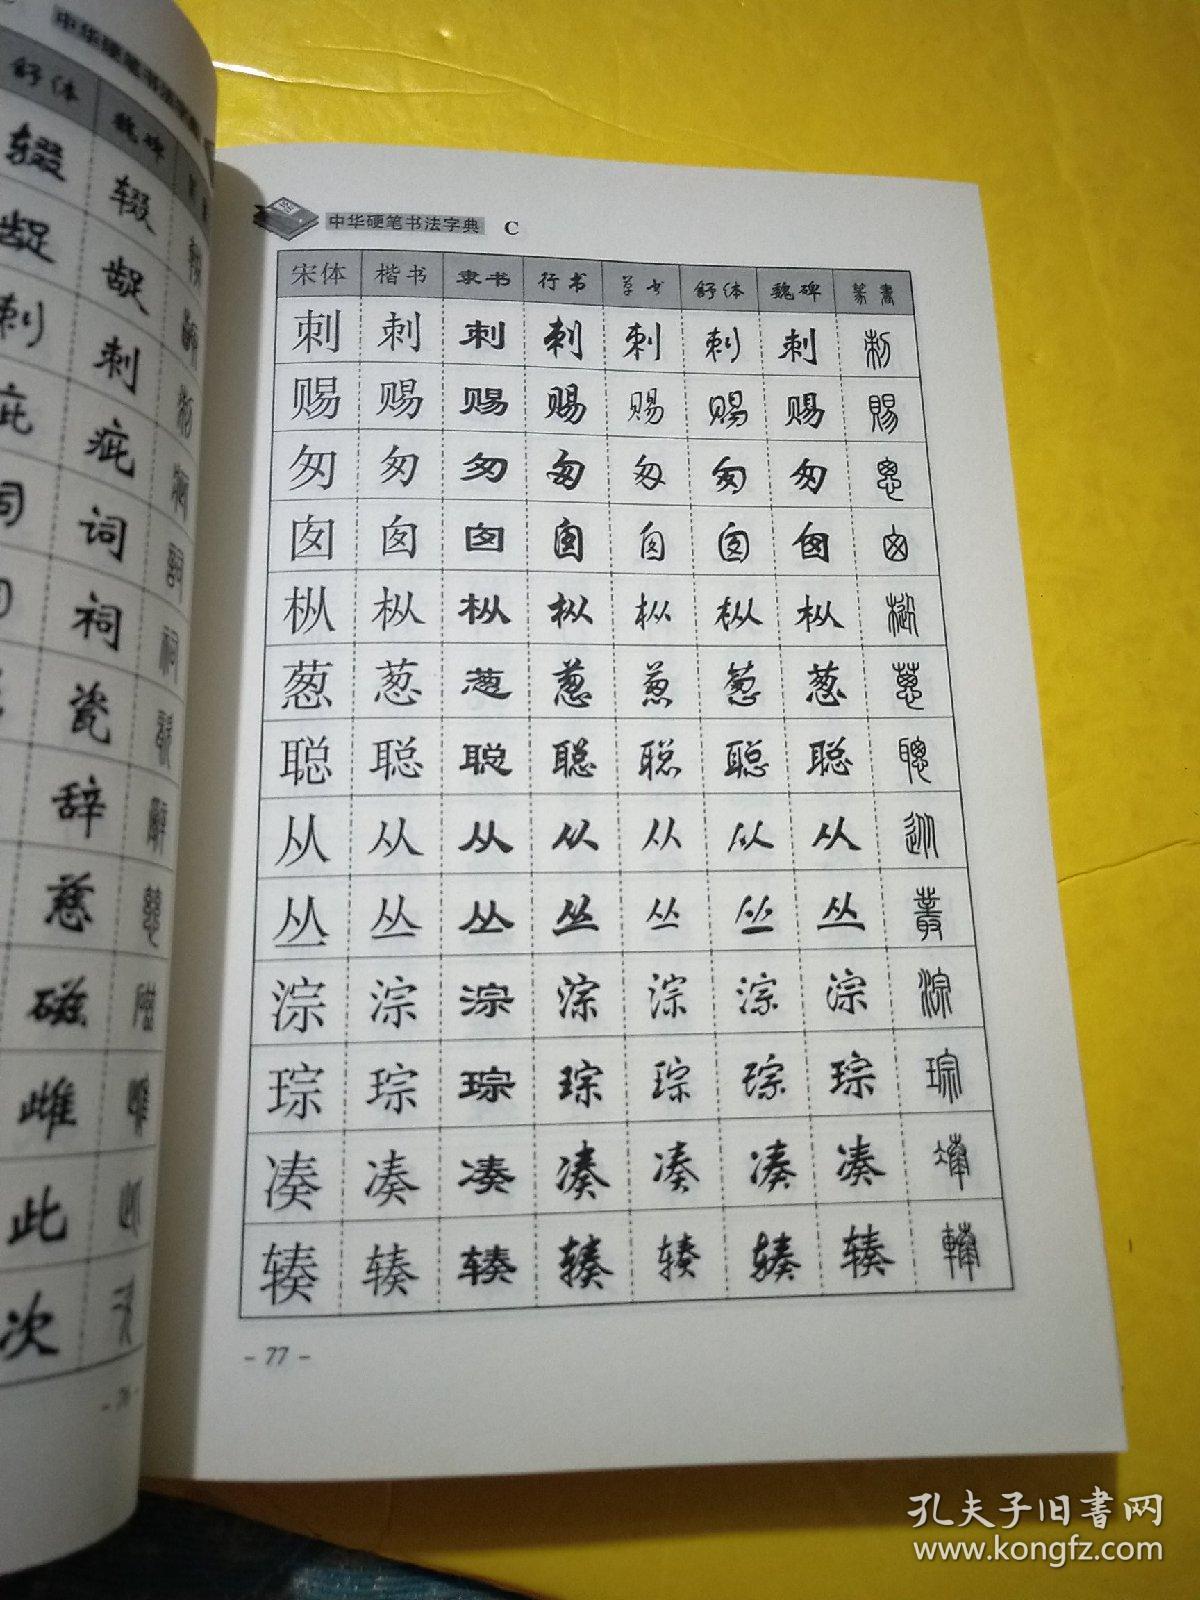 中华硬笔书法字典
舒体 魏碑
辍 辍
龊 龊
刺 刺
疵 疵
词 词
祠
瓷
辞
慈
磁
雌
此
次
- 76 -
中华硬笔书法字典 C
宋体 楷书 隶书 行书 草书 舒体 魏碑 篆書
刺 刺 刺 刺 刺 刺 刺 刺
赐 赐 赐 赐 赐 赐 赐 賜
匆 匆 匆 匆 匆 匆 匆 悤
囱 囱 囱 囱 囱 囱 囱 囱
枞 枞 枞 枞 枞 枞 枞 樅
葱 葱 葱 葱 葱 葱 葱 蔥
聪 聪 聪 聪 聪 聪 聪 聰
从 从 从 从 从 从 从 從
丛 丛 丛 丛 丛 丛 丛 叢
淙 淙 淙 淙 淙 淙 淙 淙
琮 琮 琮 琮 琮 琮 琮 琮
凑 凑 凑 凑 凑 凑 凑
辏 辏 辏 辏 辏 辏 辏 輳
- 77 -
孔夫子旧書网
www.kongfz.com